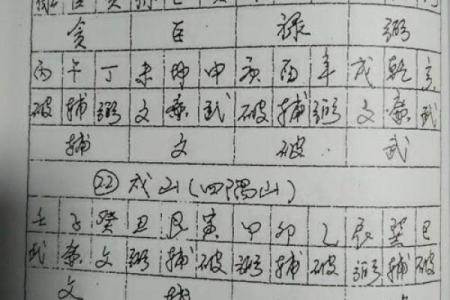 贪 巨 禄 弼
丙 午 丁 未 坤 申 庚 酉 辛 戌 乾 亥
破 辅 弼 文 廉 武 破 辅 弼 文 廉 武
辅 文 破 武
㉒ 戌山(四隅山)
壬 子 癸 丑 艮 寅 甲 卯 乙 辰 巽 巳
武 廉 文 弼 辅 破 弼 辅 破 弼 辅 破
文